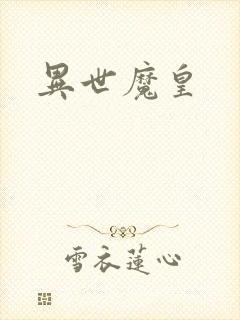 異世魔皇
雪衣蓮心